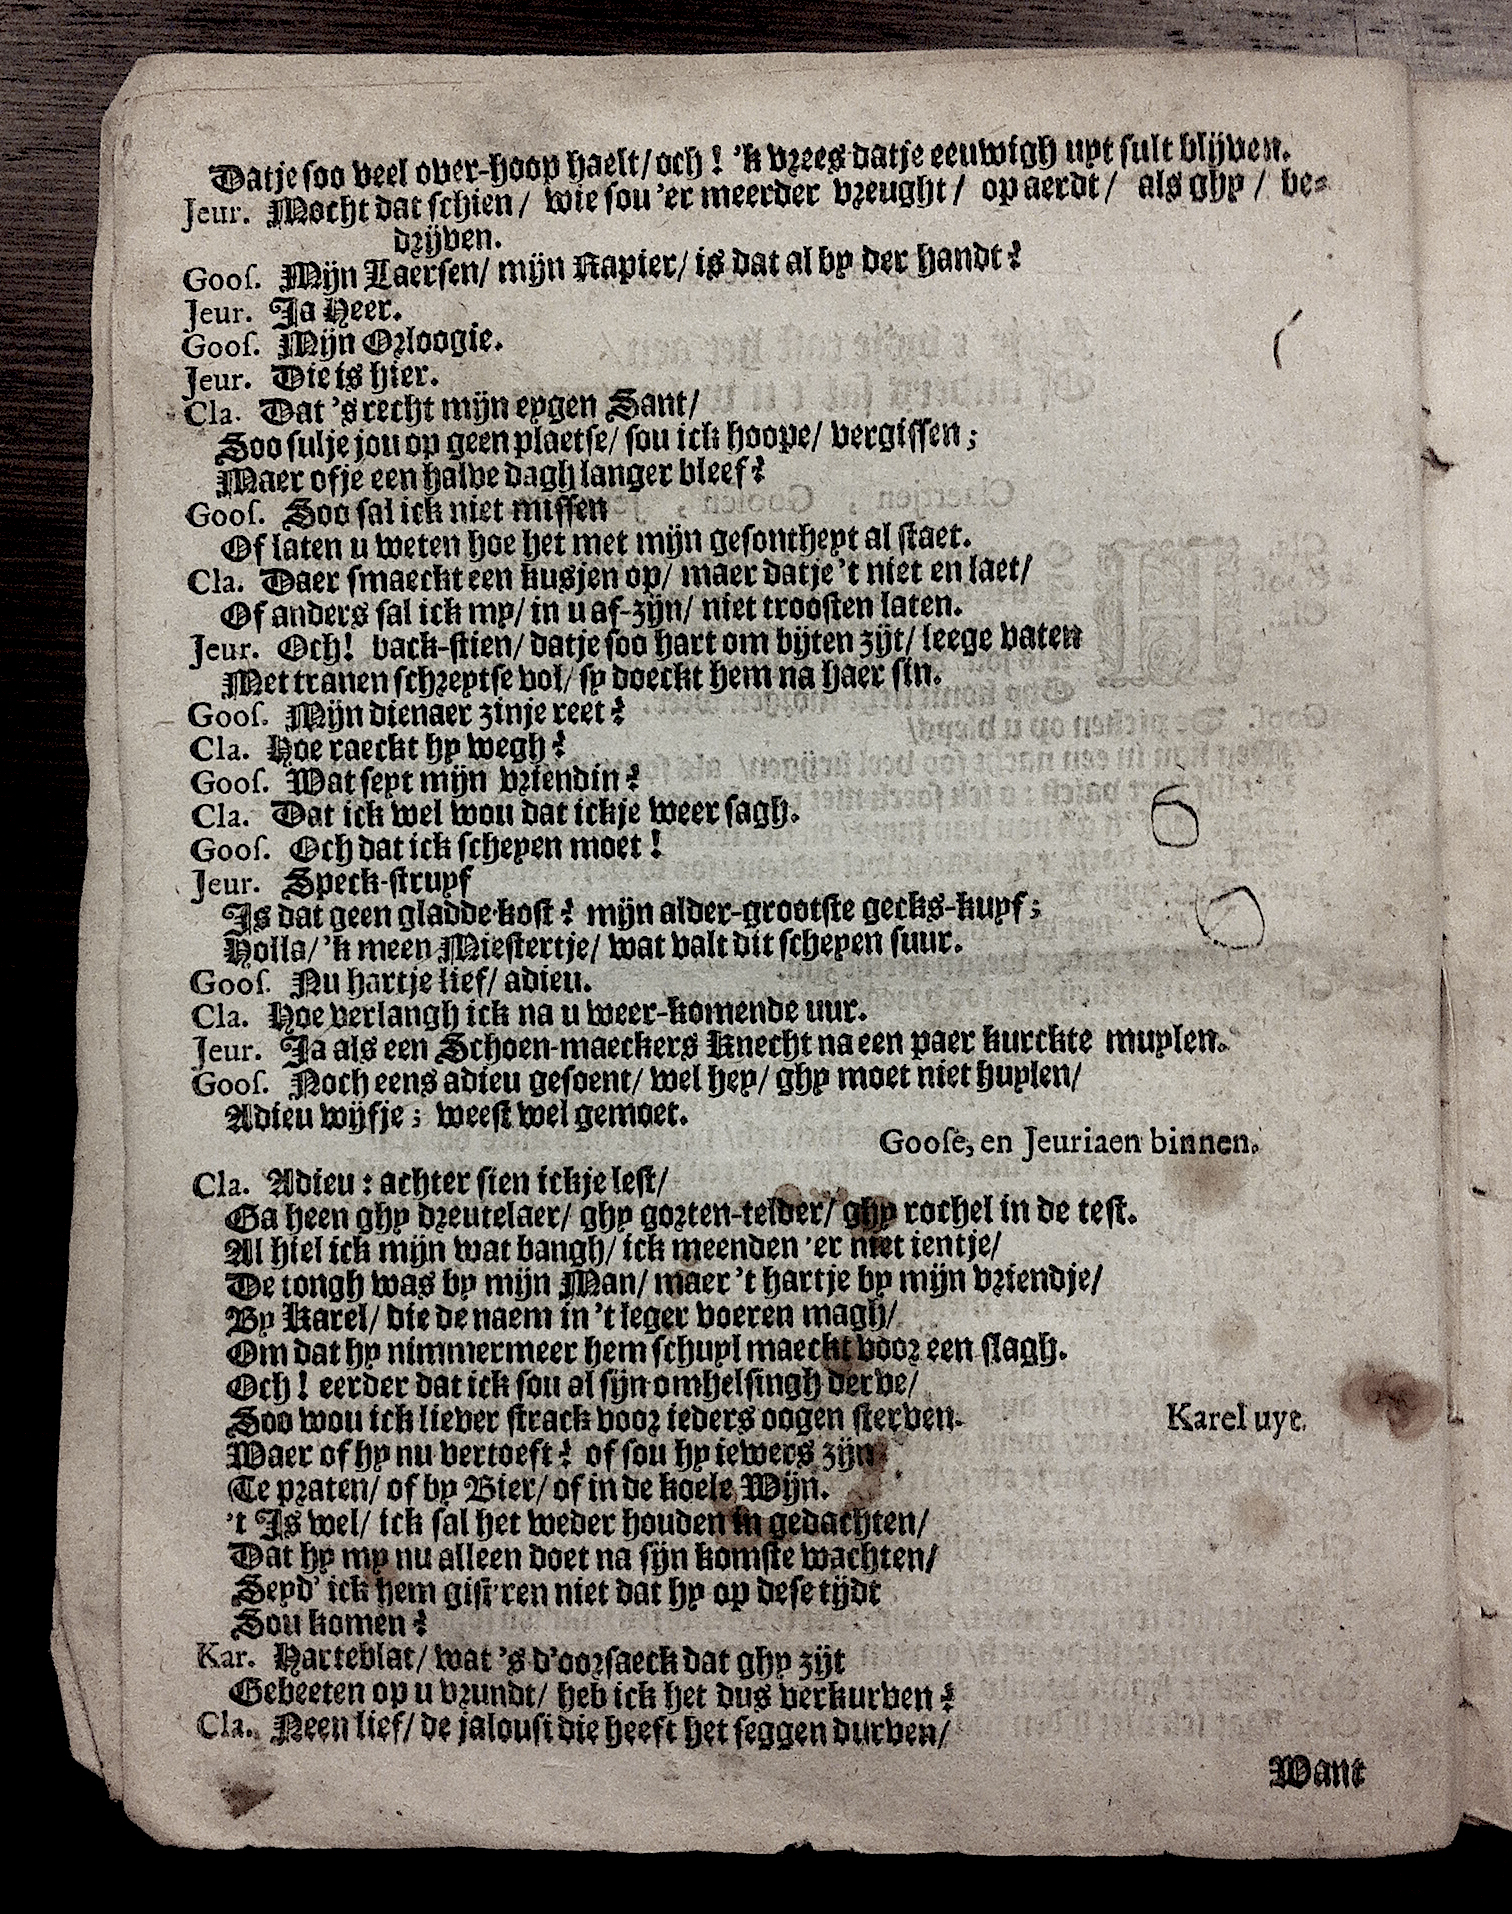 Datje soo veel over-hoop haelt/ och! 'k vrees datje eeuwigh uyt sult blijven.
Jeur. Mocht dat schien/ wie sou 'er meerder vreught/ op aerdt/ als ghy/ be-
drijven.
Goos. Mijn Laersen/ mijn Rapier/ is dat al by der handt?
Jeur. Ja Heer.
Goos. Mijn Orloogie.
Jeur. Die is hier.
Cla. Dat 's recht mijn eygen Sant/
Soo sulje jou op geen plaetse/ sou ick hoope/ vergissen;
Maer ofje een halve dagh langer bleef?
Goos. Soo sal ick niet missen
Of laten u weten hoe het met mijn gesontheyt al staet.
Cla. Daer smaeckt een kusjen op/ maer datje 't niet en laet/
Of anders sal ick my/ in u af-zijn/ niet troosten laten.
Jeur. Och! back-stien/ datje soo hart om bijten zijt/ leege vaten
Met tranen schreytse vol/ sy doeckt hem na haer sin.
Goos. Mijn dienaer zinje reet?
Cla. Hoe raeckt hy wegh?
Goos. Wat seyt mijn vriendin?
Cla. Dat ick wel wou dat ickje weer sagh.
Goos. Och dat ick scheyen moet!
Jeur. Speck-struyf
Is dat geen gladde kost? mijn alder-grootste gecks-kuyf;
Holla/ 'k meen Miestertje/ wat valt dit scheyen suur.
Goos. Nu hartje lief/ adieu.
Cla. Hoe verlangh ick na u weer-komende uur.
Jeur. Ja als een Schoen-maeckers Knecht na een paer kurckte muylen.
Goos. Noch eens adieu gesoent/ wel hey/ ghy moet niet huylen/
Adieu wijfje; weest wel gemoet.
Goose, en Jeuriaen binnen.
Cla. Adieu: achter sien ickje lest/
Ga heen ghy dreutelaer/ ghy gorten-telder/ ghy rochel in de test.
Al hiel ick mijn wat bangh/ ick meenden 'er niet ientje/
De tongh was by mijn Man/ maer 't hartje by mijn vriendje/
By Karel/ die de naem in 't leger voeren magh/
Om dat hy nimmermeer hem schuyl maeckt voor een slagh.
Och! eerder dat ick sou al sijn omhelsingh derve/
Soo wou ick liever strack voor ieders oogen sterven. Karel uyt.
Waer of hy nu vertoeft? of sou hy iewers zijn
Te praten/ of by Bier/ of in de koele Wijn.
't Is wel/ ick sal het weder houden in gedachten/
Dat hy my nu alleen doet na sijn komste wachten/
Seyd' ick hem gist'ren niet dat hy op dese tijdt
Sou komen?
Kar. Harteblat/ wat 's d'oorsaeck dat ghy zijt
Gebeeten op u vrundt/ heb ick het dus verkurven?
Cla. Neen lief/ de jalousi die heeft het seggen durven/
Want